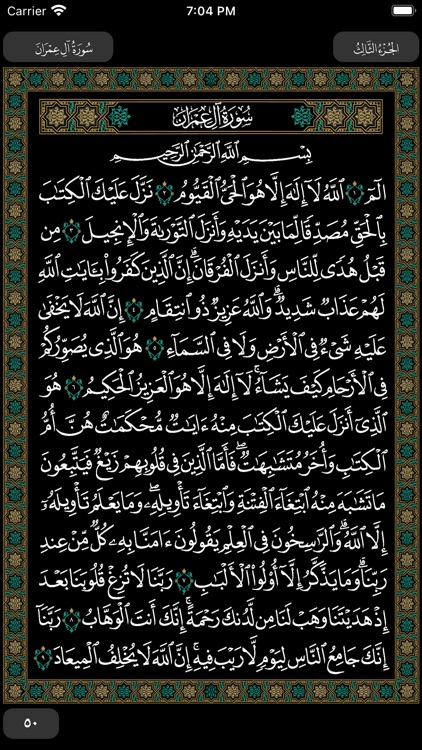 Carrier 7:04 PM
سُورَةُ آلِ عِمْرَانَ الجُزءُ الثَّالِثُ
سُورَةُ آلِ عِمْرَانَ
بِسْمِ ٱللَّهِ ٱلرَّحْمَٰنِ ٱلرَّحِيمِ
الٓمٓ ١ ٱللَّهُ لَآ إِلَٰهَ إِلَّا هُوَ ٱلْحَىُّ ٱلْقَيُّومُ ٢ نَزَّلَ عَلَيْكَ ٱلْكِتَٰبَ
بِٱلْحَقِّ مُصَدِّقًا لِّمَا بَيْنَ يَدَيْهِ وَأَنزَلَ ٱلتَّوْرَىٰةَ وَٱلْإِنجِيلَ ٣ مِن
قَبْلُ هُدًى لِّلنَّاسِ وَأَنزَلَ ٱلْفُرْقَانَۗ إِنَّ ٱلَّذِينَ كَفَرُوا۟ بِـَٔايَٰتِ ٱللَّهِ
لَهُمْ عَذَابٌ شَدِيدٌۗ وَٱللَّهُ عَزِيزٌ ذُو ٱنتِقَامٍ ٤ إِنَّ ٱللَّهَ لَا يَخْفَىٰ
عَلَيْهِ شَىْءٌ فِى ٱلْأَرْضِ وَلَا فِى ٱلسَّمَآءِ ٥ هُوَ ٱلَّذِى يُصَوِّرُكُمْ
فِى ٱلْأَرْحَامِ كَيْفَ يَشَآءُۚ لَآ إِلَٰهَ إِلَّا هُوَ ٱلْعَزِيزُ ٱلْحَكِيمُ ٦ هُوَ
ٱلَّذِىٓ أَنزَلَ عَلَيْكَ ٱلْكِتَٰبَ مِنْهُ ءَايَٰتٌ مُّحْكَمَٰتٌ هُنَّ أُمُّ
ٱلْكِتَٰبِ وَأُخَرُ مُتَشَٰبِهَٰتٌۖ فَأَمَّا ٱلَّذِينَ فِى قُلُوبِهِمْ زَيْغٌ فَيَتَّبِعُونَ
مَا تَشَٰبَهَ مِنْهُ ٱبْتِغَآءَ ٱلْفِتْنَةِ وَٱبْتِغَآءَ تَأْوِيلِهِۦۖ وَمَا يَعْلَمُ تَأْوِيلَهُۥٓ
إِلَّا ٱللَّهُۗ وَٱلرَّٰسِخُونَ فِى ٱلْعِلْمِ يَقُولُونَ ءَامَنَّا بِهِۦ كُلٌّ مِّنْ عِندِ
رَبِّنَاۗ وَمَا يَذَّكَّرُ إِلَّآ أُو۟لُوا۟ ٱلْأَلْبَٰبِ ٧ رَبَّنَا لَا تُزِغْ قُلُوبَنَا بَعْدَ
إِذْ هَدَيْتَنَا وَهَبْ لَنَا مِن لَّدُنكَ رَحْمَةًۚ إِنَّكَ أَنتَ ٱلْوَهَّابُ ٨ رَبَّنَآ
إِنَّكَ جَامِعُ ٱلنَّاسِ لِيَوْمٍ لَّا رَيْبَ فِيهِۚ إِنَّ ٱللَّهَ لَا يُخْلِفُ ٱلْمِيعَادَ ٩
٥٠